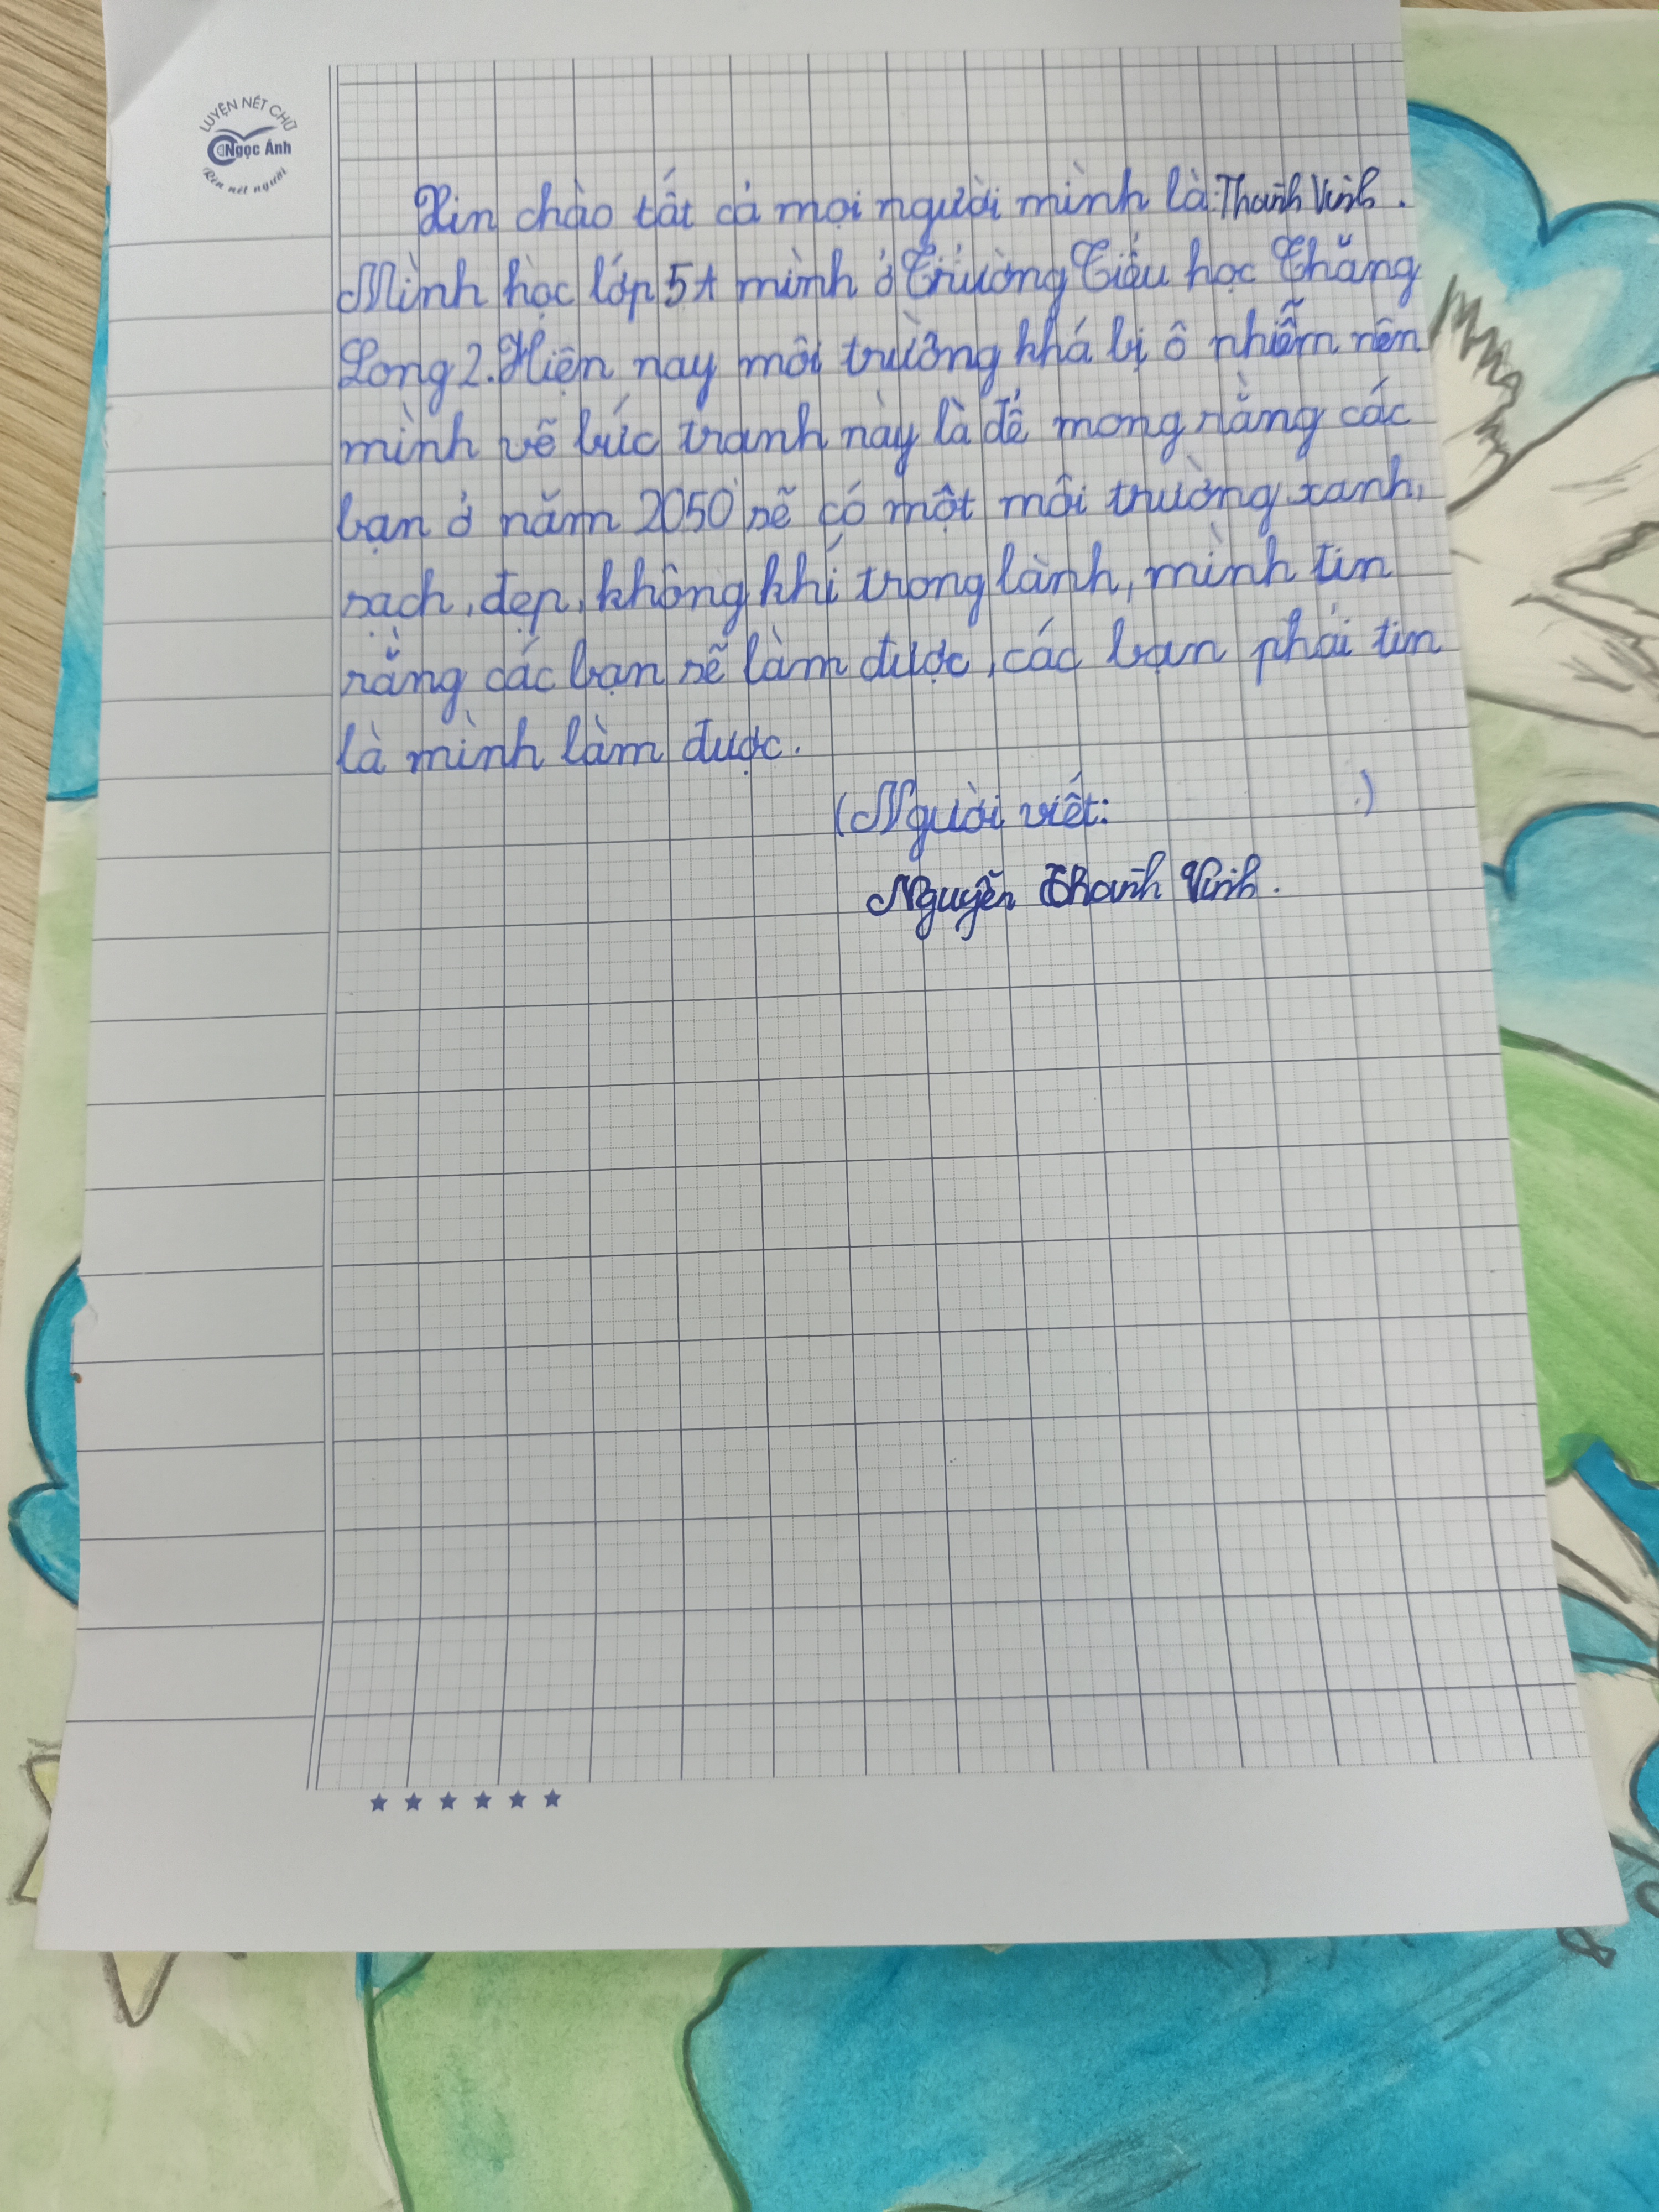 LUYỆN NÉT CHỮ
Ngọc Ánh
Rèn nết người
Xin chào tất cả mọi người mình là: Thanh Vinh.
Mình học lớp 5A mình ở Trường Tiểu học Thăng
Long 2. Hiện nay môi trường khá bị ô nhiễm nên
mình vẽ bức tranh này là để mong rằng các
bạn ở năm 2050 sẽ có một môi trường xanh,
sạch, đẹp, không khí trong lành, mình tin
rằng các bạn sẽ làm được, các bạn phải tin
là mình làm được.
(Người viết: )
Nguyễn Thanh Vinh.